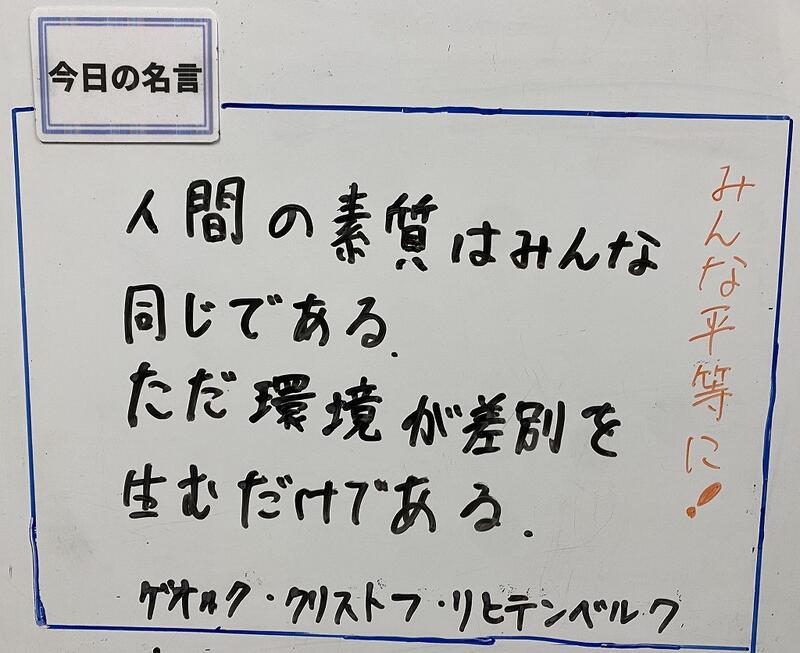 今日の名言
人間の素質はみんな
同じである.
ただ環境が差別を
生むだけである.
ゲオルク・クリストフ・リヒテンベルク
みんな平等に!